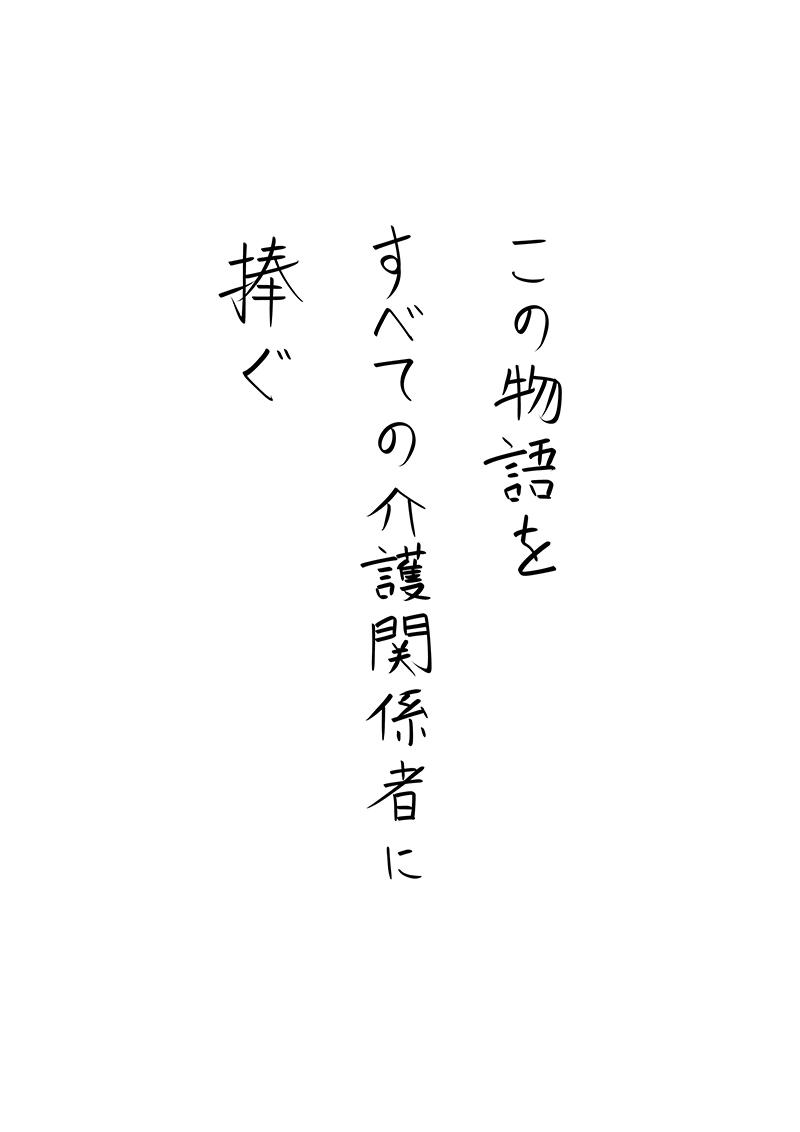 この物語を
すべての介護関係者に
捧ぐ